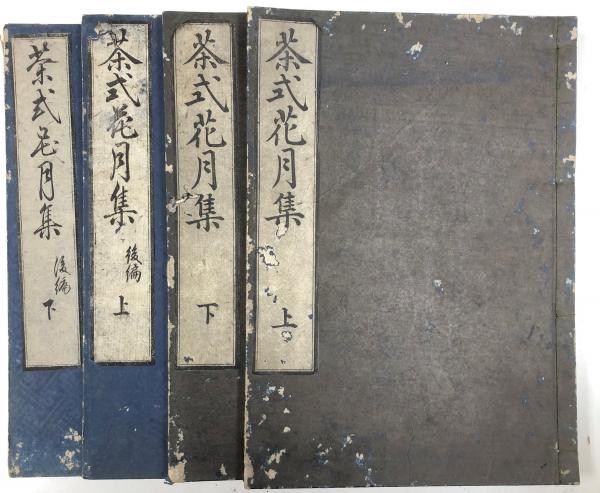 茶式花月集 上
茶式花月集 下
茶式花月集 後編 上
茶式花月集 後編 下